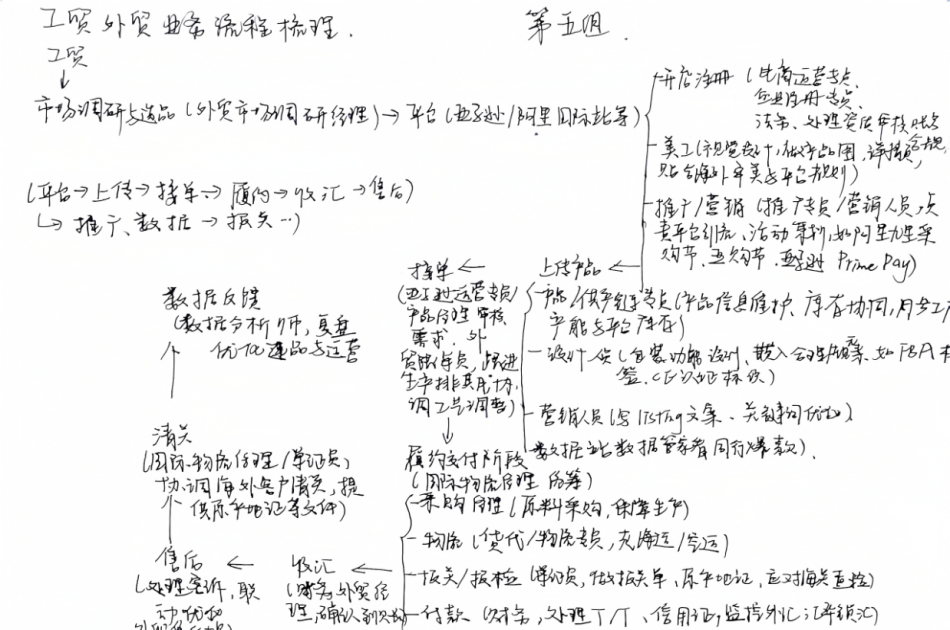 工贸外贸业务流程梳理.
第五组.
工贸
↓
市场调研与选品(外贸市场调研经理)→平台(亚马逊/阿里国际站等)
(平台→上传→接单→履约→收汇→售后)
↳推广、数据→报关…)
开店注册(电商运营专员、
企业注册专员、
法务、处理资质审核
美工(视觉设计,做产品图,详情页
贴合海外审美与平台规则)
推广/营销(推广专员/营销人员,负
责平台引流、活动策划,如阿里九星采
购节、亚马逊 Prime Day)
上传产品
产品/供应链专员(产品信息维护、库存协同,同步工厂
产能与平台库存)
设计 (包装功能设计,嵌入合规 如FBA标
签、CE认证标识)
营销人员(写listing文案、关键词优化)
数据 (数据 看同行爆款).
接单 ←
(亚马逊运营专员/
产品经理审核
需求,外
贸跟单员,跟进
生产排其尾协
调工艺调整)
↓
履约交付阶段
(国际物流经理统筹)
采购经理(原料采购,保障生产)
物流(货代/物流专员,走海运/空运)
报关/报检(单证员,做报关单,原产地证,应对海关查验)
付款(财务,处理T/T、信用证,监控外汇
收汇 ←
(财务,外贸经
理,确认到账)
售后 ←
(处理客诉,联
动优化
清关
(国际物流经理/单证员,
协调海外客户清关,提
供原产地证等文件)
数据反馈
(数据分析师,复盘
优化选品与运营